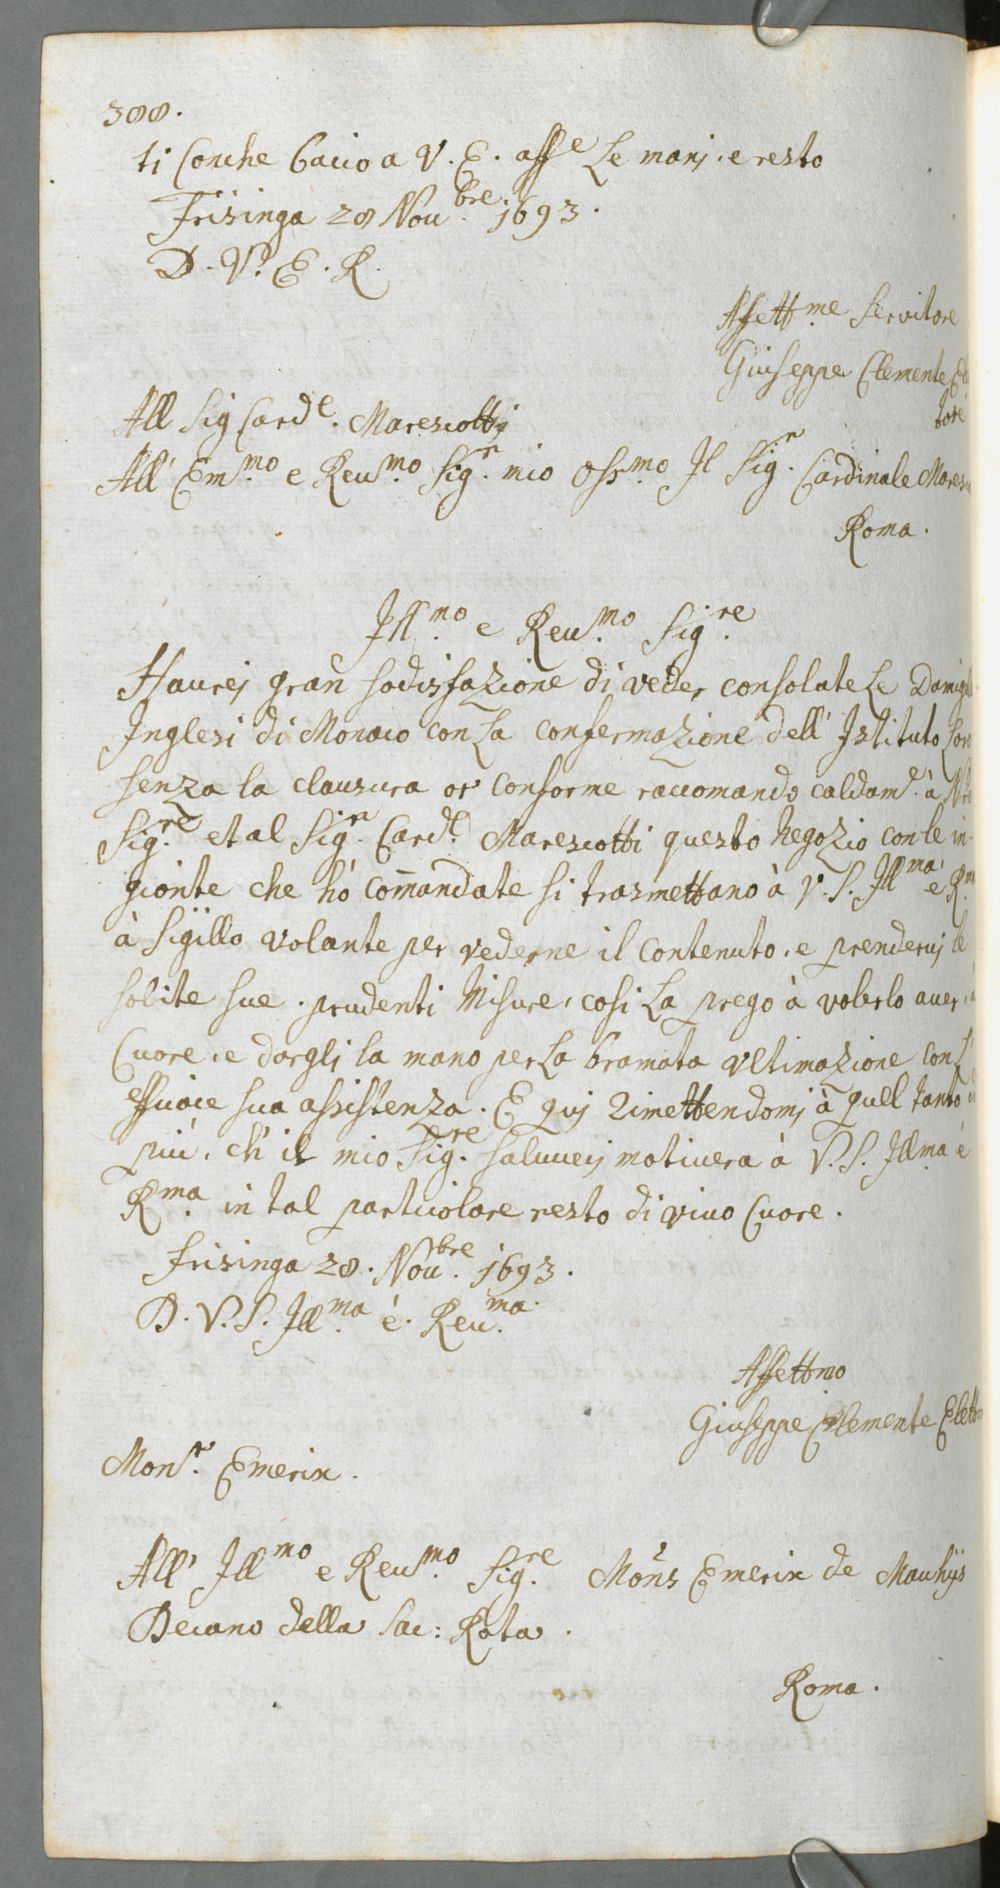 388.
ti Conche bacio a V. E. affe Le manj. e resto
Frisinga 28 Noubre. 1693.
D. Va. E. R.
Affettme. Servitore
Giuseppe Clemente Elet
tore
All Sig Carde. Marescottj
All' Emmo. e Reumo. Sigr. mio Ossmo. Il Sigr. Cardinale Maresc
Roma.
Illmo. e Reumo. Sigre.
Haurej gran sodisfazione di veder consolate Le Damigelle
Inglesi di Monaco con La confermazione dell' Istituto loro
senza la clausura or conforme raccomando caldamte. à Nro
Sigre. et al Sigr. Cardl. Marescotti questo Negozio con le in-
gionte che hò Com̄andate si trasmettano à V. S. Illma. e Rma
à Sigillo volante per vederne il Contenuto, e prenderuj le
solite sue prudenti Misure, cosi La prego à volerlo auer, à
Cuore, e dargli la mano per La bramata Vltimazione con l'
efficace sua assistenza. E quj Rimettendomj à quel tanto di
più, ch' il mio Sigre. Saluuej motiuera à V. S. Illma. é
Rma. in tal particolare resto di viuo Cuore.
Frisinga 28. Noubre. 1693.
D. V. S. Illma. é. Reuma.
Affettmo
Giuseppe Clemente Elett
Monsr. Emerix.
All' Illmo. e Reumo. Sigre. Mons Emerix de Mauhijs
Decano della Sac: Rota.
Roma.